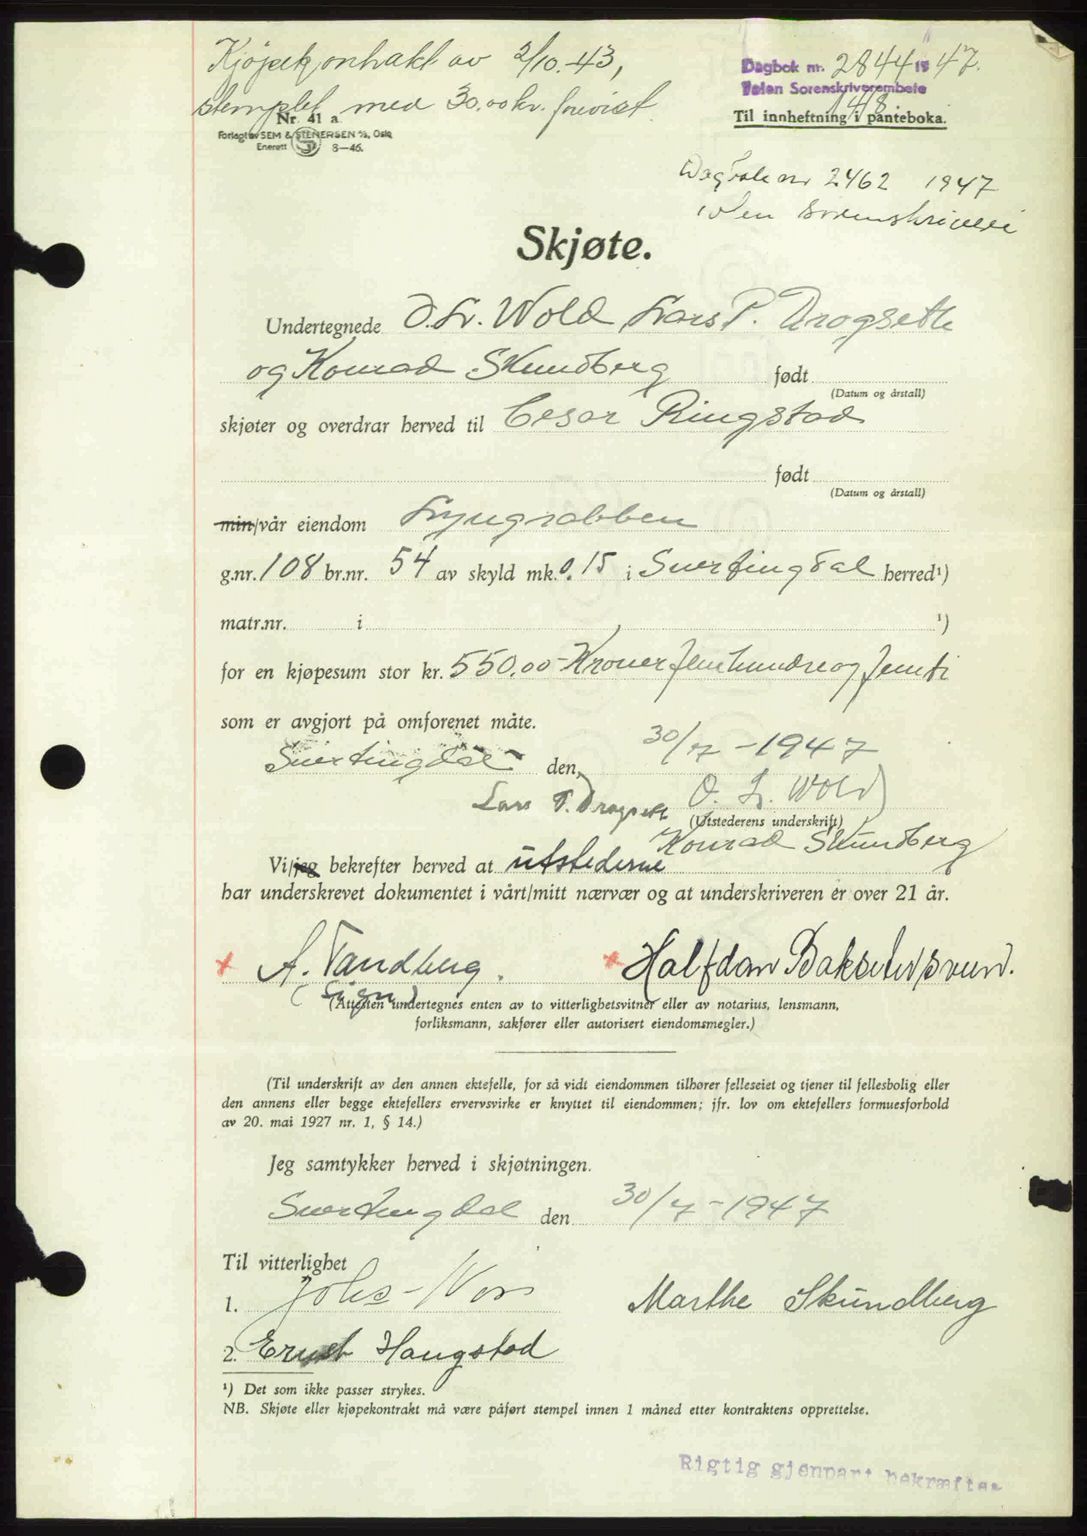 Kjøpekontrakt av 2/10.-43,
stemplet med 30.00 kr. forevist.
Dagbok nr. 2844 1947.
Toten Sorenskriverembete
148
Til innheftning i panteboka.
Nr. 41 a
Forlagt av SEM & STENERSEN A/S, Oslo
Enerett 8—46.
Dagbok nr 2462 1947
Toten Sorenskriveri
Skjøte.
Undertegnede O. L. Wold Lars P. Drogseth
og Konrad Skundberg født
(Datum og årstall)
skjøter og overdrar herved til Cesar Ringstad
født
(Datum og årstall)
min/vår eiendom Lyngrabben
g.nr. 108 br.nr. 54 av skyld mk. 0.15 i Snertingdal herred¹)
matr.nr. i ¹)
for en kjøpesum stor kr. 550.00 - Kroner femhundreog femti
som er avgjort på omforenet måte.
Snertingdal den 30/7 - 1947
Lars P. Drogseth O. L. Wold
(Utstederens underskrift)
Konrad Skundberg
Vi/jeg bekrefter herved at utstederne
har underskrevet dokumentet i vårt/mitt nærvær og at underskriveren er over 21 år.
A. Tandberg. Halfdan Baksetersveen.
(sign)
(Attesten undertegnes enten av to vitterlighetsvitner eller av notarius, lensmann,
forliksmann, sakfører eller autorisert eiendomsmegler.)
(Til underskrift av den annen ektefelle, for så vidt eiendommen tilhører felleseiet og tjener til fellesbolig eller
den annens eller begge ektefellers ervervsvirke er knyttet til eiendommen; jfr. lov om ektefellers formuesforhold
av 20. mai 1927 nr. 1, § 14.)
Jeg samtykker herved i skjøtningen.
Snertingdal den 30/7 - 1947
Til vitterlighet
1. Johs
Marthe Skundberg
2. Ernst Haugstad
¹) Det som ikke passer strykes.
NB. Skjøte eller kjøpekontrakt må være påført stempel innen 1 måned etter kontraktens opprettelse.
Rigtig gjenpart bekræftes